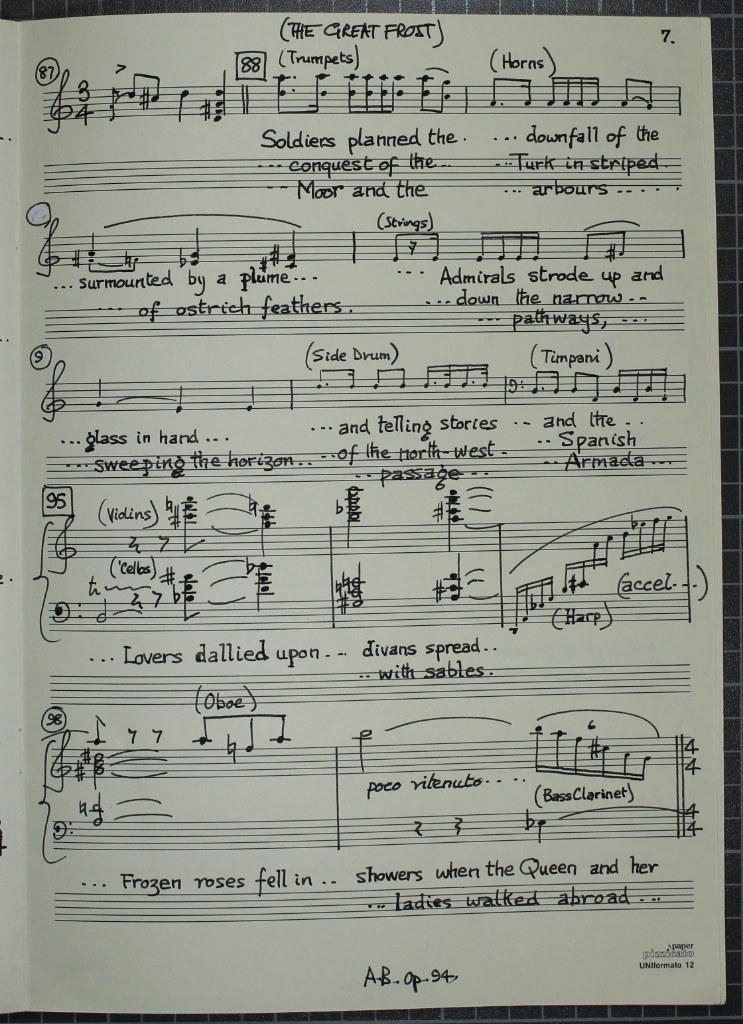 (THE GREAT FROST)
7.
87
88
(Trumpets)
(Horns)
3
4
Soldiers planned the . ... downfall of the
... conquest of the... ...Turk in striped.
-- Moor and the ... arbours ---- .
(Strings)
... surmounted by a plume... ... Admirals strode up and
... of ostrich feathers. ...down the narrow --
... pathways, ...
9
(Side Drum)
(Timpani)
...glass in hand ... ... and telling stories -- and the ..
... sweeping the horizon.. ..of the north-west - .. Spanish
.. passage -- .. Armada ...
95
(Violins)
('Cellos)
6
tr
(Harp)
(accel...)
... Lovers dallied upon ... divans spread..
.. with sables.
98
(Oboe)
6
poco ritenuto. . . .
(Bass Clarinet)
4
4
4
4
... Frozen roses fell in .. showers when the Queen and her
... ladies walked abroad ...
A.B. Op. 94.
paper
pizzicato
UNIformato 12